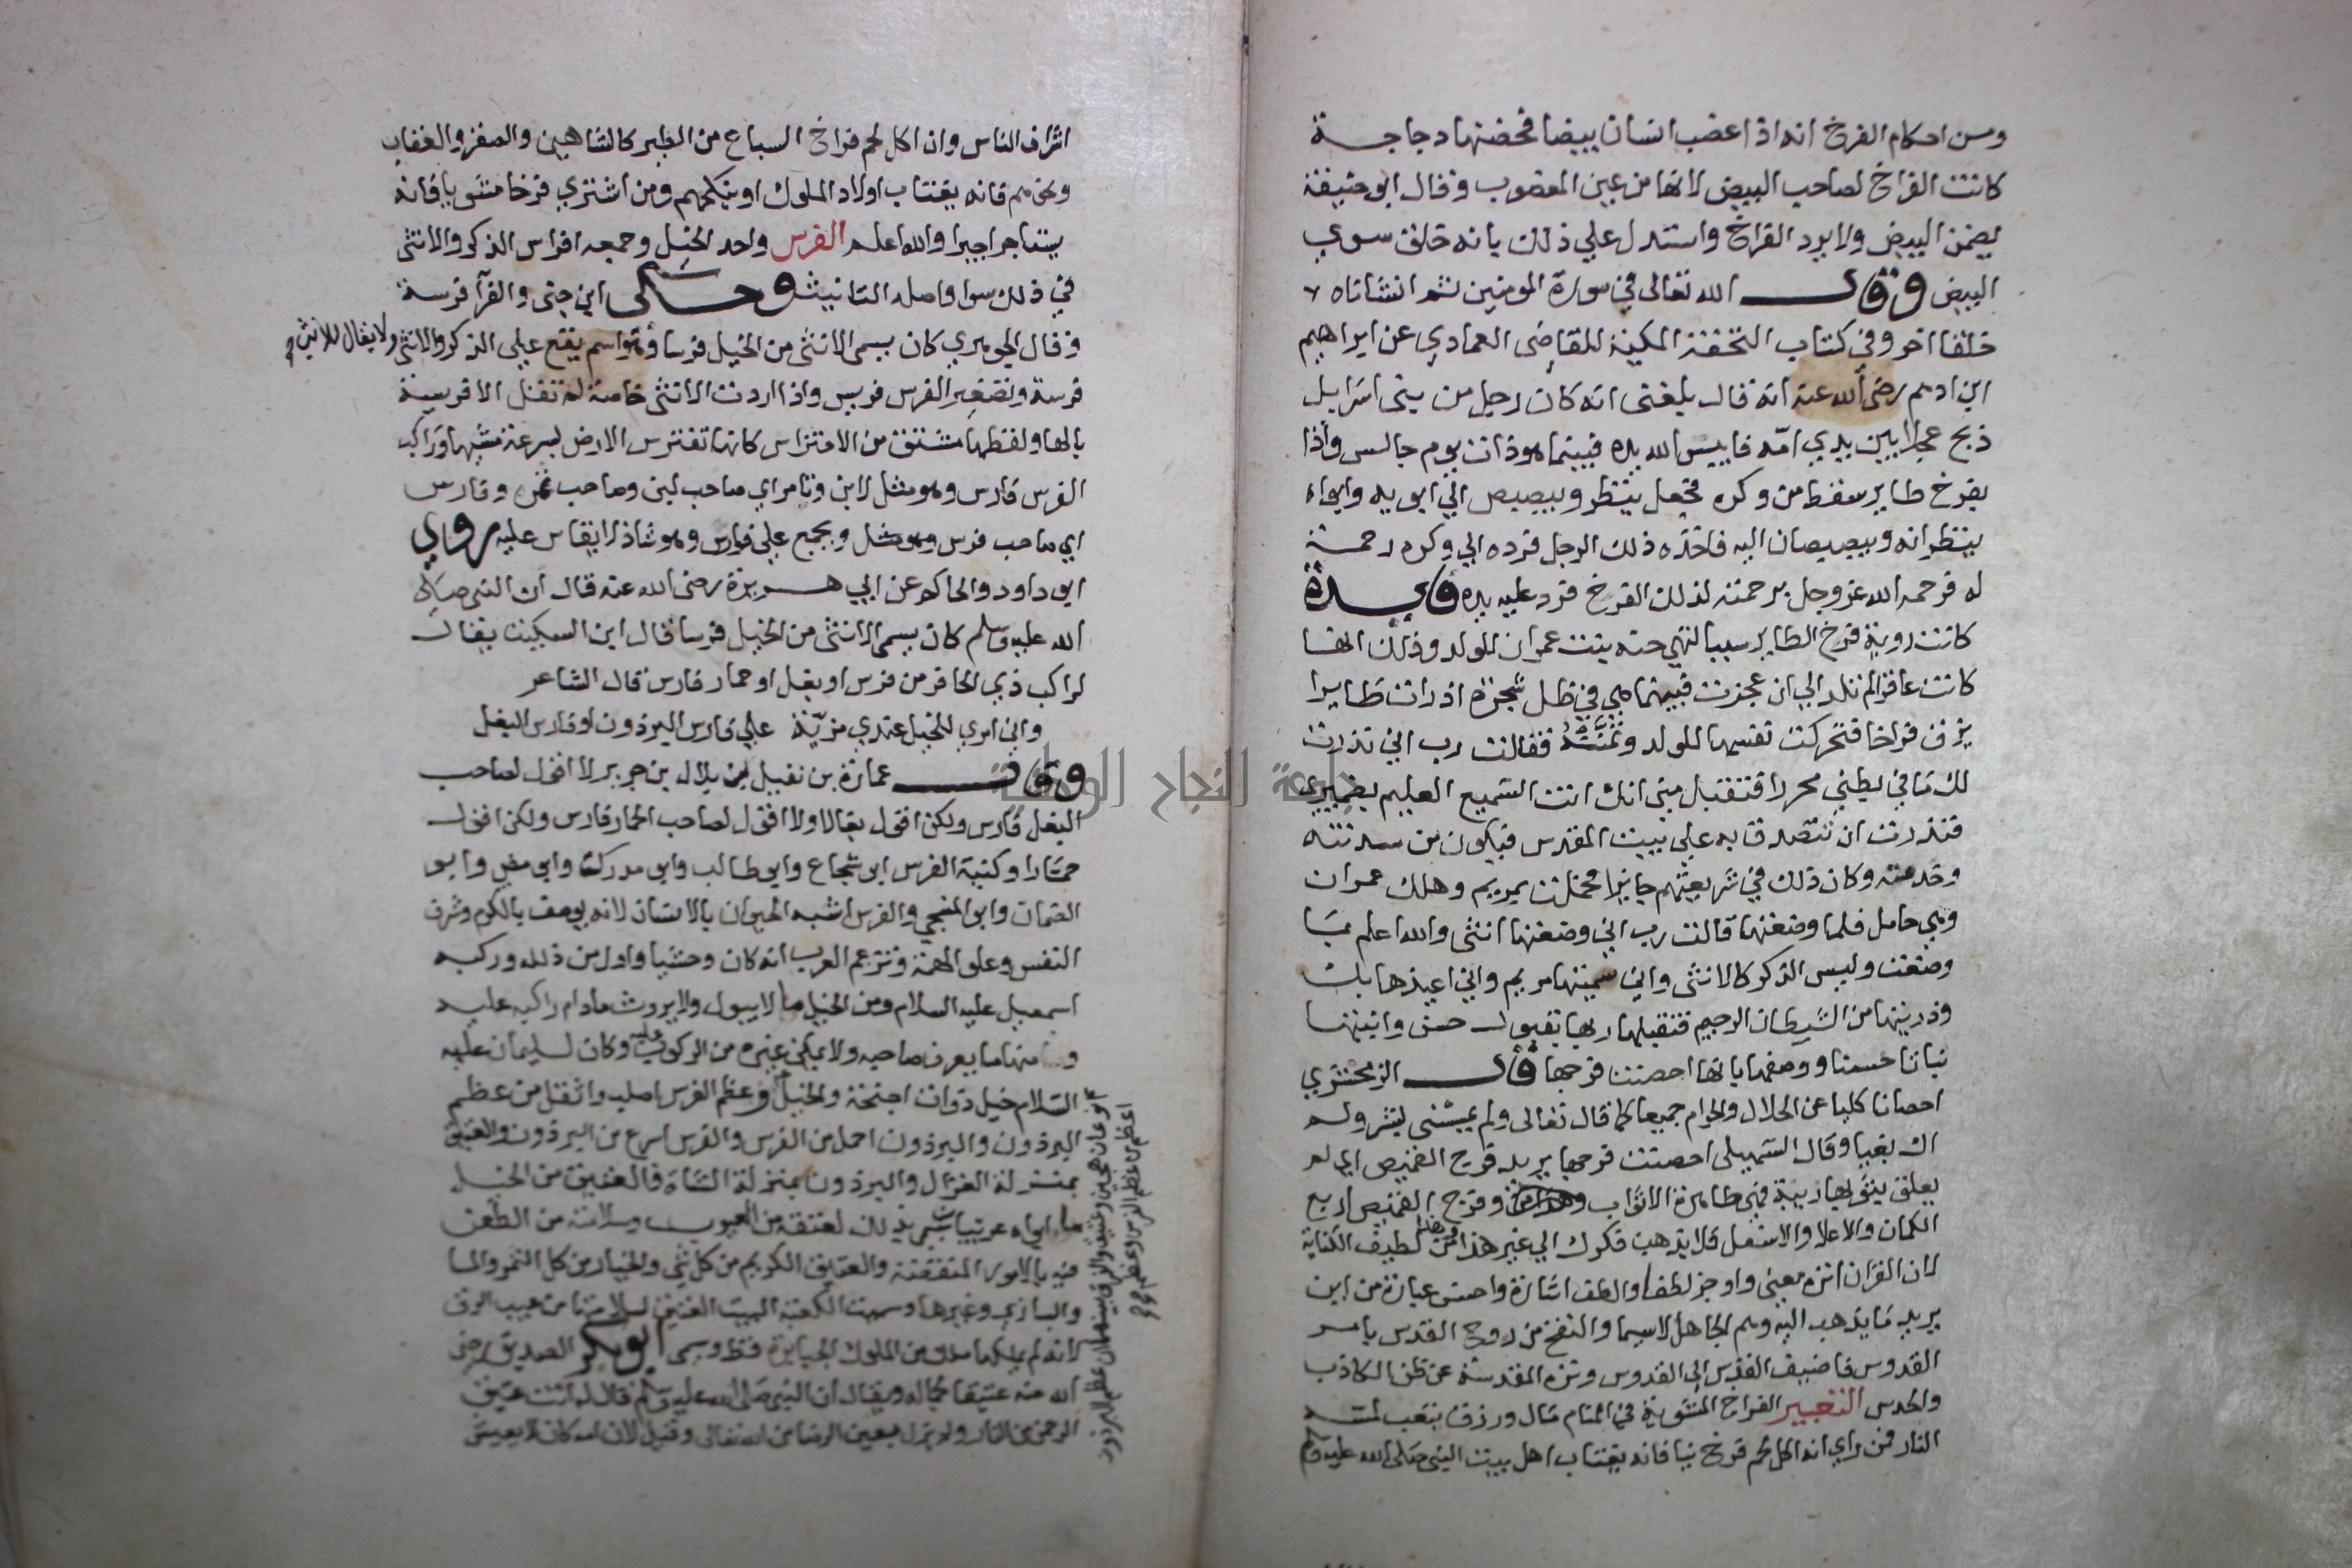 ومن احكام الفرخ انه اذا غضب انسان بيضا فحضنها دجاجة
كانت الفراخ لصاحب البيض لانها من عين المغصوب وقال ابو حنيفة
يضمن البيض ولا يرد الفراخ واستدل علي ذلك بانه خلق سوي
البيض وقال الله تعالى في سورة المومنين ثم انشاناه
خلقا اخر وفي كتاب التحفة المكية للقاضى العمادي عن ابراهيم
ابن ادهم رضى الله عنه انه قال بلغنى انه كان رجل من بنى اسرايل
ذبح عجلا بين يدي امّه فايبس الله يده فبينما هو ذات يوم جالس واذا
بفرخ طاير سقط من وكره فجعل ينظر ويبصبص الي ابويه وابواه
ينظرانه ويبصبصان اليه فاخذه ذلك الرجل فرده الي وكره رحمة
له فرحمه الله عز وجل برحمته لذلك الفرخ فرد عليه يده فايدة
كانت روية فرخ الطاير سببا لتمني حنه بنت عمران للولد وذلك انها
كانت عاقرا لم تلد الي ان عجزت فبينما هي في ظل شجرة اذ رات طايرا
يزق فراخا فتحركت نفسها للولد وتمنته فقالت رب اني نذرت
لك ما في بطني محررا فتقبل مني انك انت السميع العليم بضميري
فنذرت ان تتصدق به علي بيت المقدس فيكون من سدنته
وخدمته وكان ذلك في شريعتهم جايزا فحملت بمريم وهلك عمران
وهي حامل فلما وضعتها قالت رب اني وضعتها انثى والله اعلم بما
وضعت وليس الذكر كالانثى واني سميتها مريم واني اعيذها بك
وذريتها من الشيطان الرجيم فتقبلها ربها بقبول حسن وانبتها
نباتا حسنا ووصفها بانها احصنت فرجها قال الزمخشري
احصانا كليا عن الحلال والحرام جميعا كما قال تعالى ولم يمسسنى بشر ولم
اك بغيا وقال السهيلى احصنت فرجها يريد فرج القميص اي لم
يعلق بثوبها ريبة فهي طاهرة الاثواب وفروج القميص اربع
الكمان والاعلا والاسفل فلا يذهب فكرك الي غير هذا من لطيف الكناية
لان القران انزه معنى واوجز لفظا والطف اشارة واحسن عبارة من اين
يريد ما يذهب اليه وهم الجاهل لاسيما والنفخ من روح القدس بامر
القدوس فاضيف القدس الى القدوس ونزه المقدسة عن ظن الكاذب
والحدس التعبير الفراخ المشوية في المنام مال ورزق بتعب لمسه
النار فمن راي انه اكل لحم فرخ نيا فانه يغتاب اهل بيت النبى صلى الله عليه وسلم
اشراف الناس وان اكل لحم فراخ السباع من الطير كالشاهين والصقر والعقاب
ونحوهم فانه يغتاب اولاد الملوك او ينكحهم ومن اشترى فرخا مشويا فانه
يستاجر اجيرا والله اعلم الفرس واحد الخيل وجمعه افراس الذكر والانثى
في ذلك سوا واصله التانيث وحكى ابن جنى والفرا فرسة
وقال الجوهري كان يسمى الانثى من الخيل فرسا وهو اسم يقع علي الذكر والانثى ولا يقال للانثى
فرسة وتصغير الفرس فريس واذا اردت الانثى خاصة لم تقل الا فريسة
بالها ولفظها مشتق من الافتراس كانها تفترس الارض بسرعة مشيها وراكب
الفرس فارس وهو مثل لابن وتامر اي صاحب لبن وصاحب تمر وفارس
اي صاحب فرس ويجمع علي فوارس وهو شاذ لا يقاس عليه روي
ابو داود والحاكم عن ابي هريرة رضى الله عنه قال ان النبى صلى
الله عليه وسلم كان يسمى الانثى من الخيل فرسا قال ابن السكيت يقال
لراكب ذي الحافر من فرس او بغل او حمار فارس قال الشاعر
واني امرى للخيل عندي مزيّة علي فارس البرذون او فارس البغل
وقال عمارة بن عقيل بن بلال بن جرير لا اقول لصاحب
البغل فارس ولكن اقول بغالا ولا اقول لصاحب الحمار فارس ولكن اقول
حمّارا وكنية الفرس ابو شجاع وابو طالب وابو مدرك وابو مضى وابو
المضمار وابو المنجي والفرس اشبه الحيوان بالانسان لانه يوصف بالكرم وشرف
النفس وعلو الهمة وتزعم العرب انه كان وحشيا واول من ذلله وركبه
اسمعيل عليه السلام ومن الخيل ما لا يبول ولا يروث ما دام راكبه عليه
ومنها ما يعرف صاحبه ولا يمكن غيره من الركوب عليه وكان لسليمان عليه
السلام خيل ذوات اجنحة والخيل وعظم الفرس اصلب واثقل من عظم
البرذون والبرذون احمل من الفرس والفرس اسرع من البرذون والعتيق
بمنزلة الغزال والبرذون بمنزلة الشاة فالعتيق من الخيل
ما ابواه عربيان سمي بذلك لعتقه من العيوب وسلامته من الطعن
فيه بالامور المنقصة والعتيق الكريم من كل شي والخيار من كل التمر والما
والبازي وغيرها وسميت الكعبة البيت العتيق لسلامتها من عيب الرق
لانه لم يملكها ملك من الملوك الجبابرة قط وسمى ابو بكر الصديق رضى
الله عنه عتيقا لجماله ويقال ان النبى صلى الله عليه وسلم قال له انت عتيق
الرحمن من النار ولم يزل بعين الرضا من الله تعالى وقيل لان امه كان لا يعيش
جامعة النجاح الوطنية